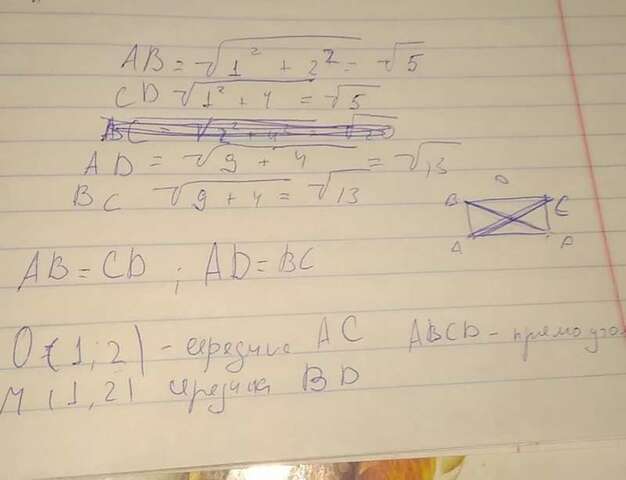 AB = √1² + 2² = √5
CD √1² + 4 = √5
AD = √9 + 4 = √13
BC √9 + 4 = √13
B C
A D
AB = CD ; AD = BC
O (1, 2) - середина AC ABCD - прямоуго
M (1, 2) середина BD